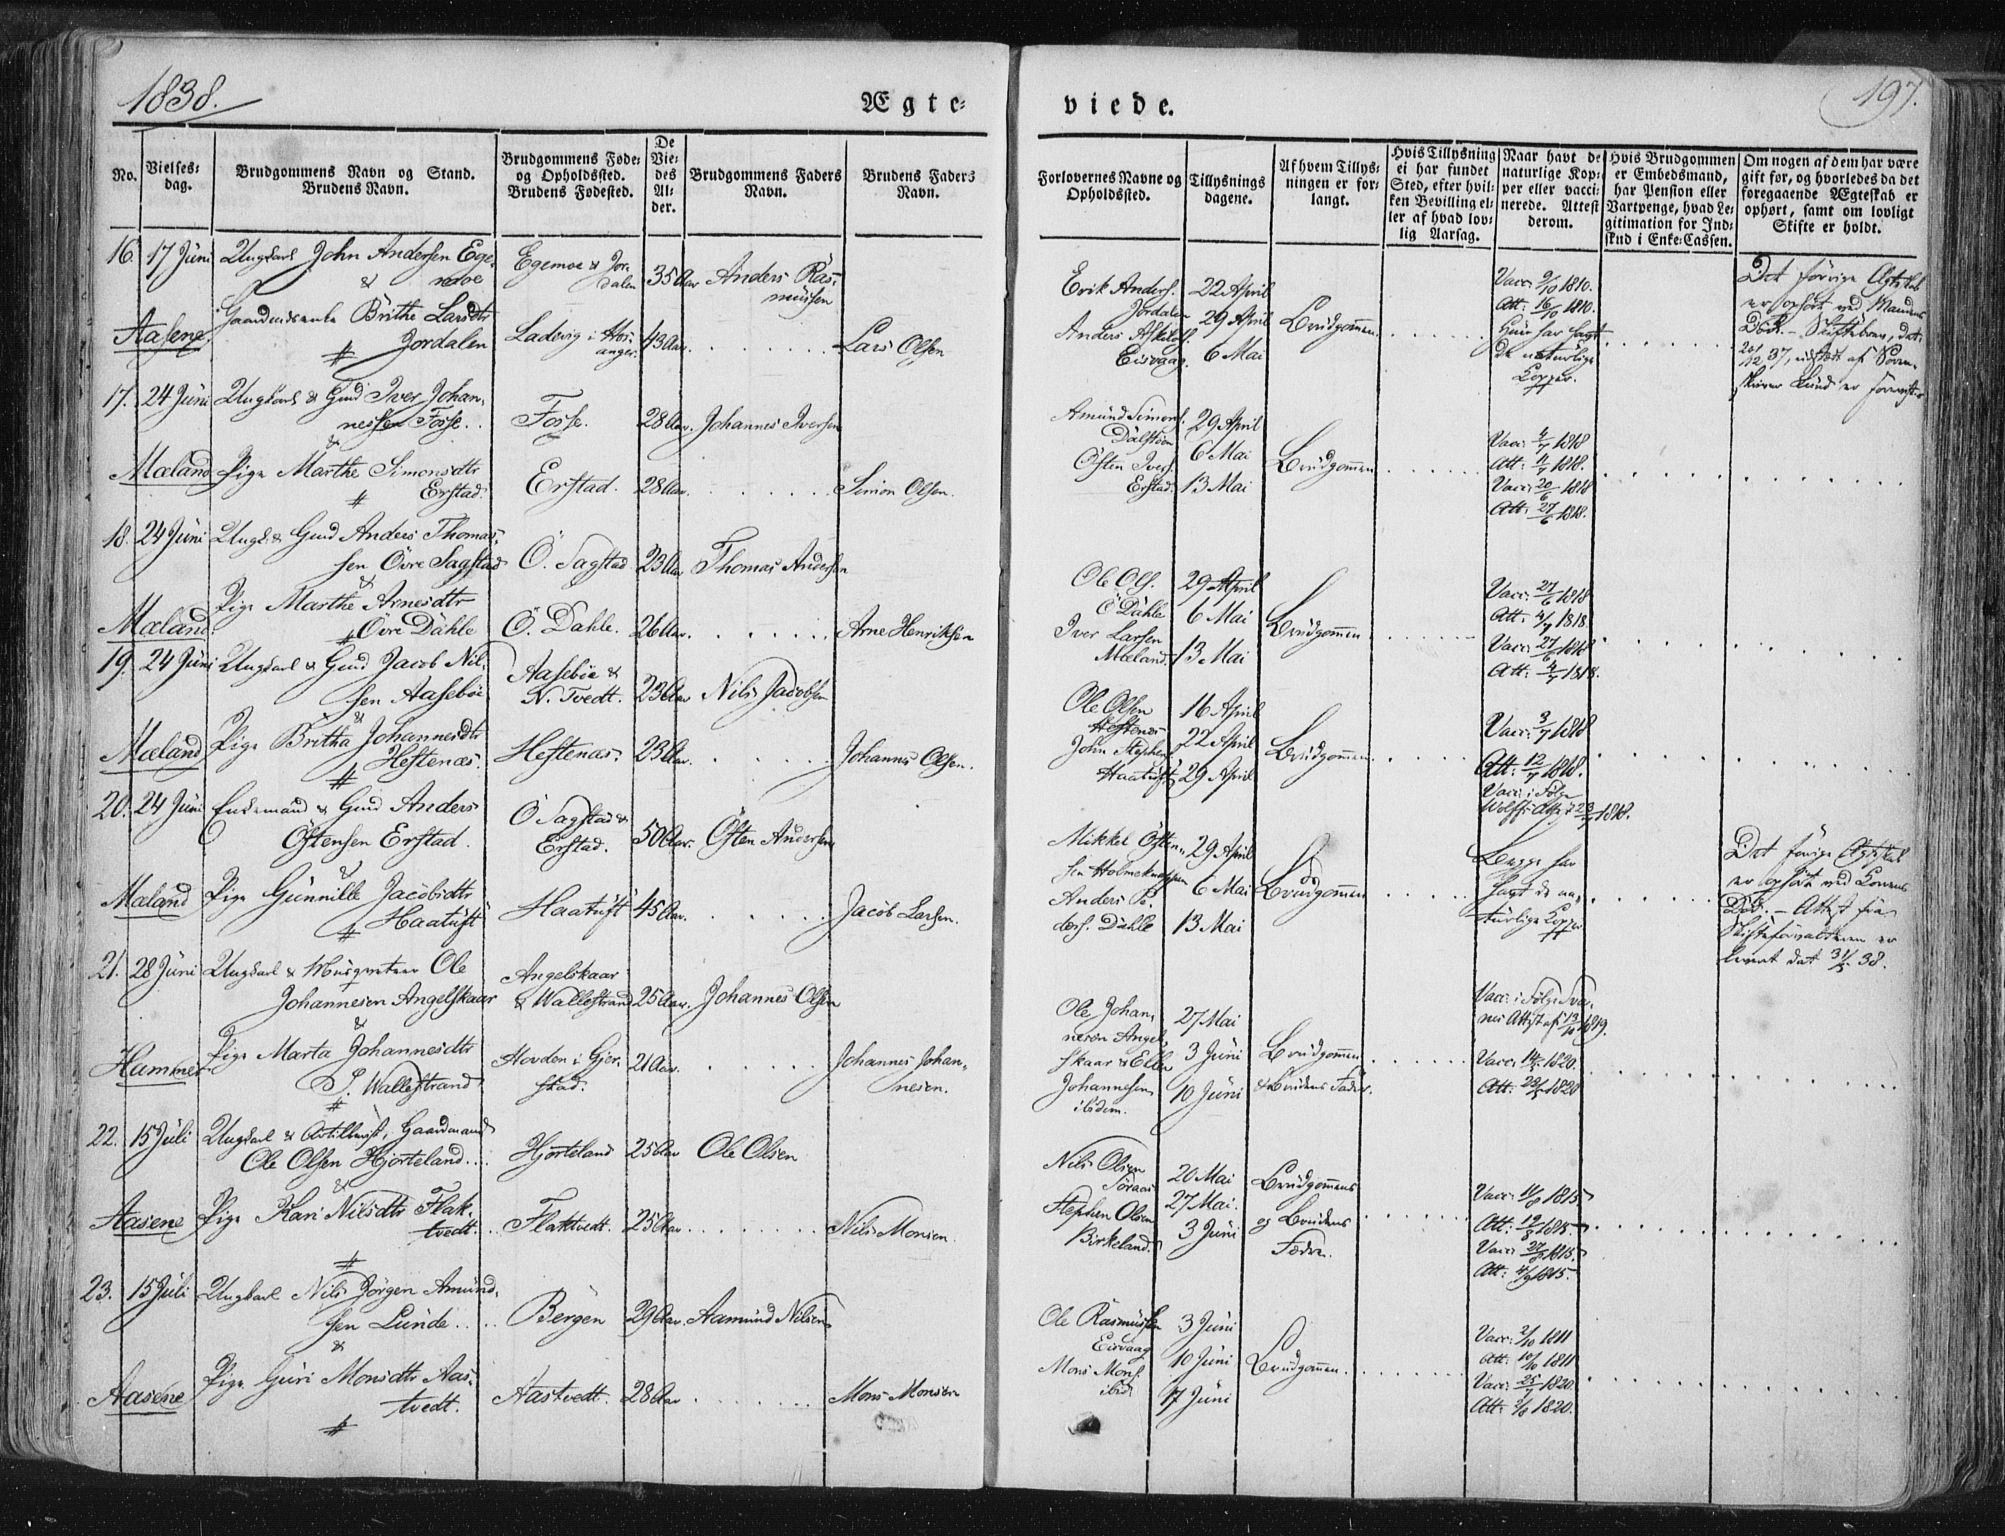 1838.
Ægte-
viede.
197.
No.
Vielses-
dag.
Brudgommens Navn og Stand.
Brudens Navn.
Brudgommens Føde-
og Opholdssted.
Brudens Fødested.
De
Vie-
des
Al-
der.
Brudgommens Faders
Navn.
Brudens Faders
Navn.
Forlovernes Navne og
Opholdssted.
Tillysnings
dagene.
Af hvem Tillys-
ningen er for-
langt.
Hvis Tillysning
ei har fundet
Sted, efter hvil-
ken Bevilling el-
ler af hvad lov-
lig Aarsag.
Naar havt de
naturlige Kop-
per eller vacci-
nerede. Attest
derom.
Hvis Brudgommen
er Embedsmand,
har Pension eller
Vartpenge, hvad Le-
gitimation for Ind-
skud i Enke-Cassen.
Om nogen af dem har være
gift før, og hvorledes da det
foregaaende Ægteskab er
ophørt, samt om lovligt
Skifte er holdt.
16. 17 Juni Ungkarl John Andersen Ege-
moe
&
Egemoe & Jor-
dalen
35 Aar Anders Ras-
mussen
Aasene. Gaardmdsenke Brithe Larsdtr
Jordalen
Ladevig i Hos-
anger
43 Aar. Lars Olsen
Erik Anders.
Jordalen
Anders Askilds.
Eisvaag.
22 April
29 April
6 Mai
Brudgommen
Vacc: 9/10 1810.
Att: 16/10 1810.
Hun har havt
de naturlige
Kopper.
Det forrige Ægteskab
er ophørt ved Mandens
Død. - Skiftebrev, dat:
20/12 37, udstædt af Soren-
skriver Lund er foreviist
17. 24 Juni Ungkarl & Gmd Iver Johan-
nessen Fosse
&
Fosse. 28 Aar. Johannes Iversen
Mæland Pige Marthe Simonsdtr
Erstad
Erstad. 28 Aar. Simon Olsen.
Amund Simons.
Dalstøen
Østen Ivers.
Erstad.
29 April
6 Mai
13 Mai
Brudgommen
Vacc: 4/7 1818
Att: 11/7 1818.
Vacc: 20/6 1818
Att: 27/6 1818.
18. 24 Juni Ungk. & Gmd Anders Thomas-
sen Övre Sagstad
&
Ö. Sagstad 23 Aar Thomas Andersen
Mæland. Pige Marthe Arnesdtr
Övre Dahle
Ö. Dahle. 26 Aar. Arne Henriksen
Ole Ols.
Ö Dahle
Iver Larsen
Mæland.
29 April
6 Mai
13 Mai
Brudgommen
Vacc: 27/6 1818
Att. 4/7 1818.
Vacc: 27/6 1818
Att: 4/7 1818.
19. 24 Juni Ungkarl & Gmd Jacob Nil-
sen Aasebøe
&
Aasebøe &
N. Tvedt. 23 Aar Nils Jacobsen
Mæland Pige Britha Johannesdtr
Heftenæs.
Heftenæs. 23 Aar. Johannes Olsen.
Ole Olsen
Heftenæs
John Stephens.
Haatuft
16 April
22 April
29 April
Brudgommen
Vacc: 3/7 1818
Att: 12/7 1818.
Vacc: i Følge
20. 24 Juni Enkemand & Gmd Anders
Östensen Erstad.
&
Ö Sagstad &
Erstad. 50 Aar. Östen Andersen
Mæland Pige Gunnille Jacobsdtr
Haatuft
Haatuft 45 Aar. Jacob Larsen.
Mikkel Østen-
sen Holmeknappen
Anders Pe-
ders. Dahle
29 April
6 Mai
13 Mai
Brudgommen
Begge har
havt de na-
turlige Kopper
Det forrige Ægteskab
er ophørt ved Konens
Død. - Attest fra
Skifteforvalteren er
leveret dat 31/5 38.
21. 28 Juni Ungkarl & Musqueteer Ole
Johannesen Angelskaar
&
Angelskaar
& Wallestrand 25 Aar. Johannes Olsen
Hammer Pige Marta Johannesdtr
Wallestrand
Hovden i Gjer-
stad. 21 Aar. Johannes Johan-
nesen.
Ole Johan-
nesen Angel-
skaar & Eller
Johannesen
ibidem.
27 Mai
3 Juni
10 Juni
Brudgommen
& Brudens Fader.
Vacc: i Følge
Vacc: 1820.
Att: 1820
22. 15 Juli Ungkarl & Artillerist, Gaardmand
Ole Olsen Hjorteland
&
Hjorteland 25 Aar Ole Olsen
Aasene Pige Kari Nilsdtr Flak-
tvedt
Flaktvedt. 25 Aar Nils Monsen.
Nils Olsen
Søraas
Stephen Olsen
Birkeland.
20 Mai
27 Mai.
3 Juni
Brudgommens
og Brudens
Fædre.
Vacc: 11/8 1815
Att: 19/8 1815.
Vacc: 27/8 1815
Att: 4/9 1815.
23. 15 Juli Ungkarl Nils Jørgen Amund-
sen Lunde
&
Bergen 29 Aar. Aamund Nilsen
Aasene Pige Guri Monsdtr Aas-
tvedt.
Aastvedt. 28 Aar Mons Monsen
Ole Rasmussen
Eisvaag
Mons Mons.
ibid:
3 Juni
10 Juni
17 Juni
Brudgommen.
Vacc: 2/10 1811
Att: 10/10 1811
Vacc: 25/7 1820.
Att: 2/8 1820.